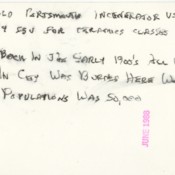 LD PORTSMOUTH INCENERATOR
FOR CERAMICS CLASSES
BACK IN THE EARLY 1900'S ALL
IN CITY WAS BURNED HERE
POPULATIONS WAS 50,000
JUNE 1983